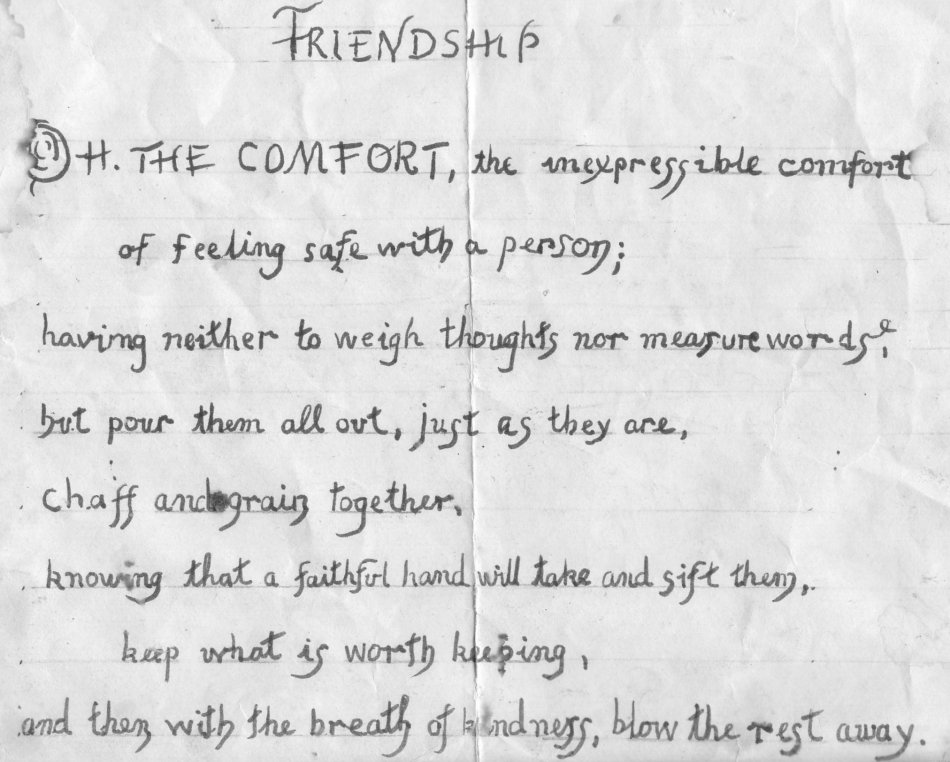 FRIENDSHIP
OH. THE COMFORT, the inexpressible comfort
of feeling safe with a person;
having neither to weigh thoughts nor measure words,
but pour them all out, just as they are,
chaff and grain together,
knowing that a faithful hand will take and sift them,
keep what is worth keeping,
and then with the breath of kindness, blow the rest away.